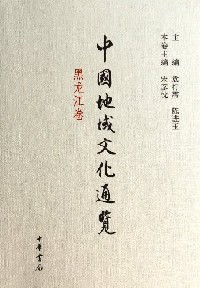 主编 袁行霈 陈进玉
本卷主编 宋彦忱
中國地域文化通覽
黑龙江卷
中華書局